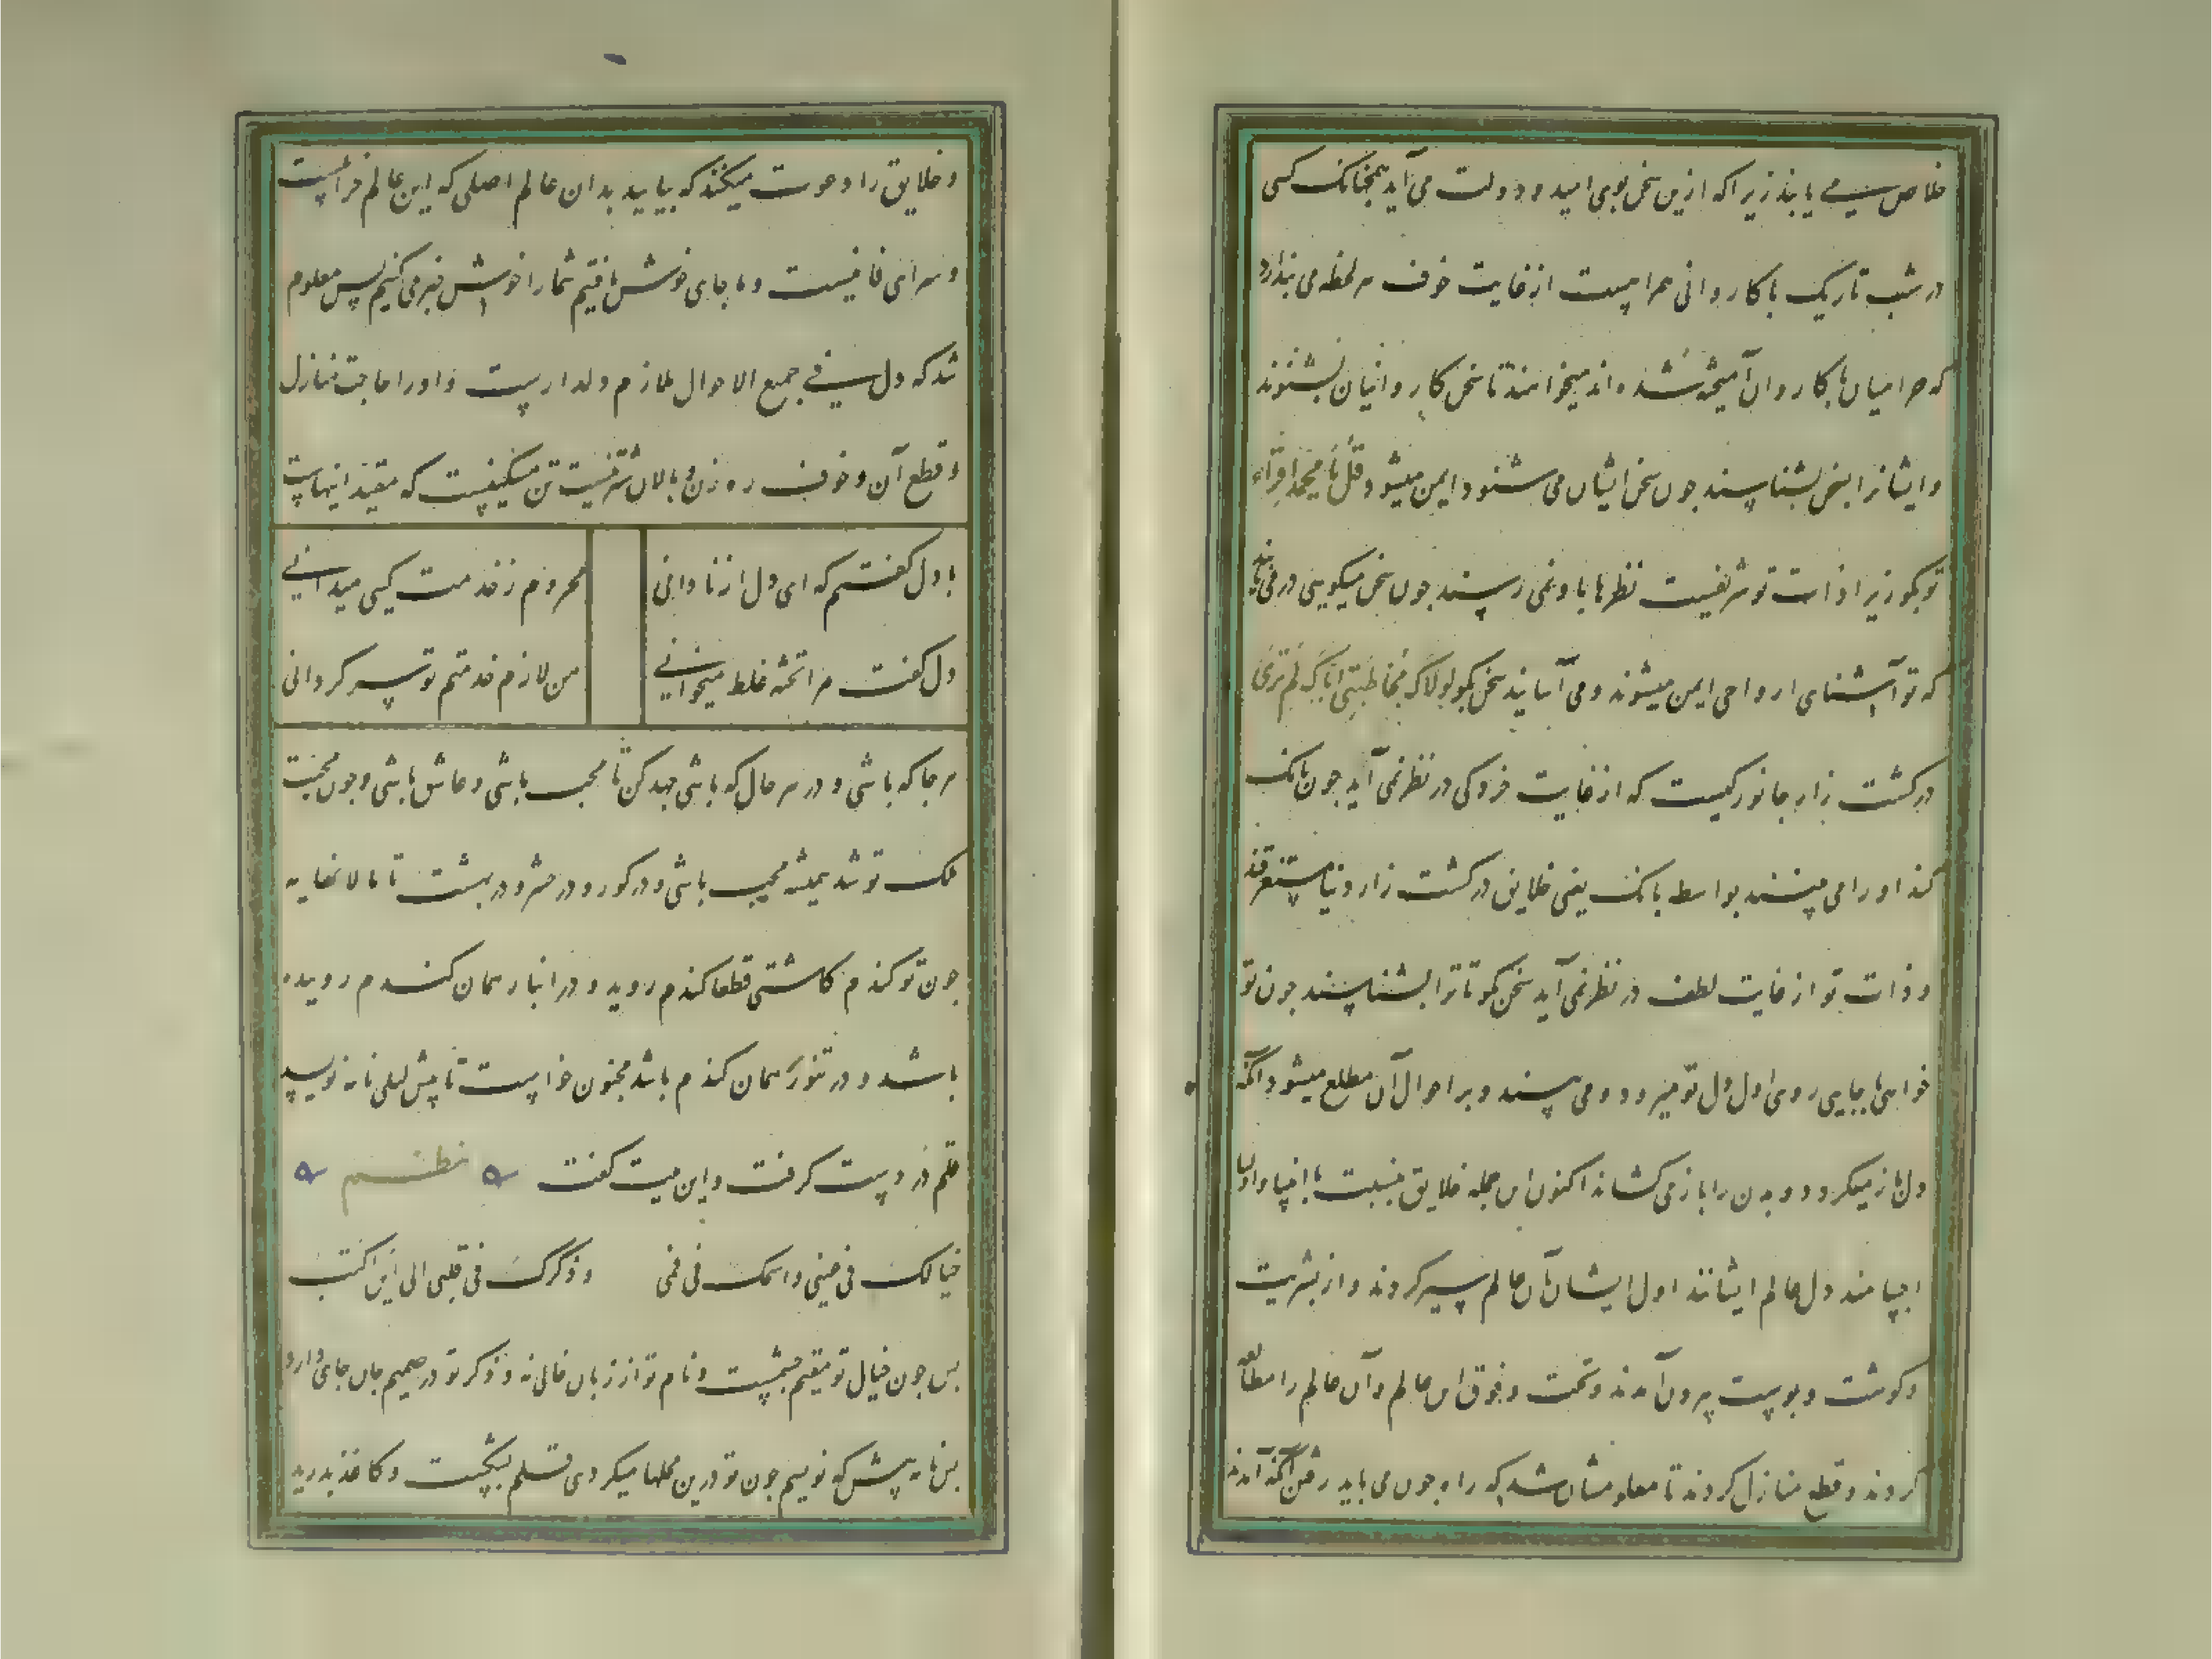 خلاص می یابند زیرا که ازین سخن بوی امید و دولت می آید همچنانک کسی
در شب تاریک با کاروانی همراهست از غایت خوف هر لحظه می پندارد
که حرامیان با کاروان آمیخته شده اند میخواهند تا سخن کاروانیان بشنوند
و ایشانرا بسخن بشناسند چون سخن ایشان می شنود ایمن میشود قل یا محمد اقراء
تو بگو زیرا ذات تو شریفست نظرها باو نمی رسند چون سخن میگویی در می یابند
که تو آشنای ارواحی ایمن میشوند و می آسایند سخن بگو لولاک مخاطبتی ایاک لم ترنی
در کشت زار جانورکیست که از غایت خردکی در نظر نمی آید چون بانک
کند او را می بینند بواسطه بانک یعنی خلایق در کشت زار دنیا مستغرقند
و ذات تو از غایت لطف در نظر نمی آید سخن بگو تا ترا بشناسند چون تو
خواهی بجایی روی اول دل تو میرود و می بیند و بر احوال آن مطلع میشود آنکه
دل باز میکردد و بدن را باز می کشاند اکنون این جمله خلایق بنسبت بانبیا و اولیا
اجسامند دل عالم ایشانند اول ایشان بآن عالم سیر کردند و از بشریت
و کوشت و پوست بیرون آمدند و تحت و فوق این عالم و آن عالم را مطالعه
کردند و قطع منازل کردند تا معلومشان شد که راه چون می باید رفتن آنکه آمدند
و خلایق را دعوت میکنند که بیایید بدان عالم اصلی که این عالم خرابیست
و سرای فانیست و ما جای خوش یافتیم شما را خوش خبر می کنیم پس معلوم
شد که دل فی جمیع الاحوال ملازم دلدارست و او را حاجت منازل
و قطع آن و خوف رهزن و پالان استر نیست تن مسکینست که مقید اینهاست
با دل کفتم که ای دل از نادانی محروم ز خدمت کیی میدانی
دل کفت مرا تخته غلط میخوانی من لازم خدمتم تو سرکردانی
هر جا که باشی و در هر حال که باشی جهد کن تا محب باشی و عاشق باشی و چون محبت
ملک تو شد همیشه محب باشی و در کور و در حشر و در بهشت تا مالانهایه
چون تو کندم کاشتی قطعا کندم روید و در انبار همان کندم روید
باشد و در تنور همان کندم باشد مجنون خواست تا پیش لیلی نامه نویسد
قلم در دست کرفت و این بیت کفت نظم
خیالک فی عینی واسمک فی فمی وذکرک فی قلبی الی این اکتب
پس چون خیال تو مقیم چشمست و نام تو از زبان خالی نه و ذکر تو در صمیم جان جای دارد
پس نامه پیش که نویسم چون تو درین محلها میکردی قلم بشکست و کاغذ بدرید